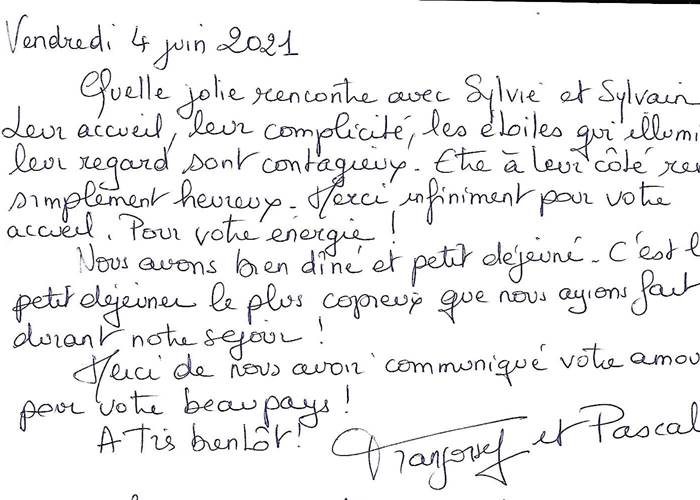 Vendredi 4 juin 2021
Quelle jolie rencontre avec Sylvie et Sylvain
Leur accueil, leur complicité, les étoiles qui illumi
leur regard sont contagieux. Etre à leur côté ren
simplement heureux. Merci infiniment pour votre
accueil. Pour votre énergie !
Nous avons bien dîné et petit déjeuné. C'est l
petit déjeuner le plus copieux que nous ayions fait
durant notre séjour !
Merci de nous avoir communiqué votre amou
pour votre beau pays !
A Très bientôt !
et Pascal